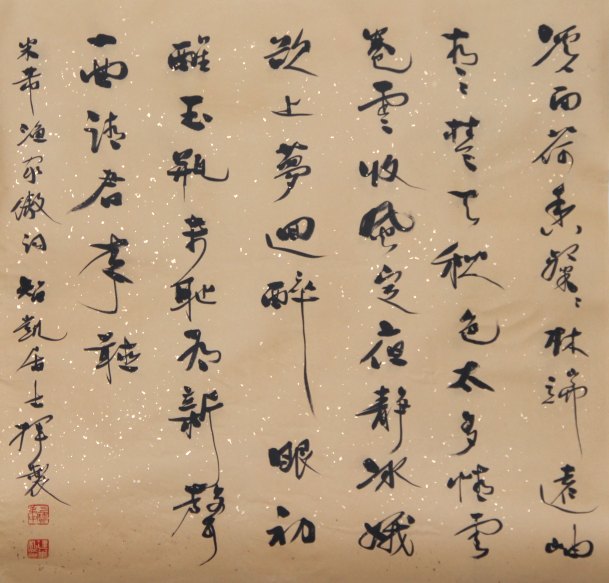 溪面荷香粲々林端遠岫
青々楚天秋色太多情雲
卷雲收風定夜靜冰娥
欲上夢迴醉眼初
醒玉瓶未耻有新聲
一曲請君來聽
米芾漁家傲詞智凱居士揮製